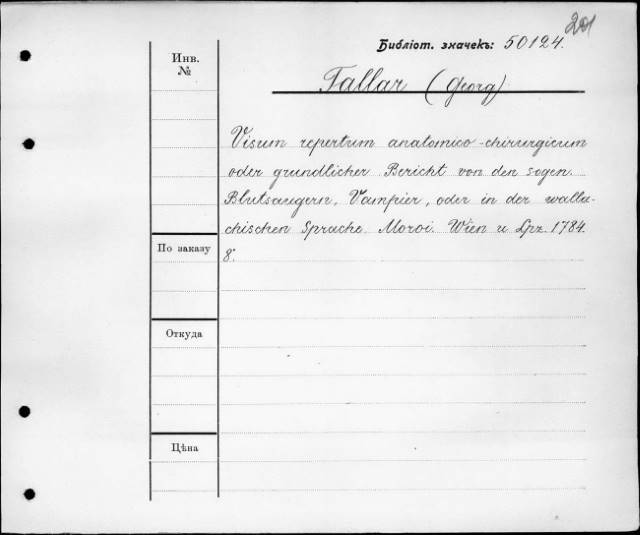 201
Библіот. значекъ: 50124.
Инв.
№
Tallar (Georg).
Visum repertum anatomico-chirurgicum
oder grundlicher Bericht von den sogen.
Blutsaugern, Vampier, oder in der walla-
chischen Sprache Moroi. Wien u Lpz. 1784.
8°.
По заказу
Откуда
Цѣна